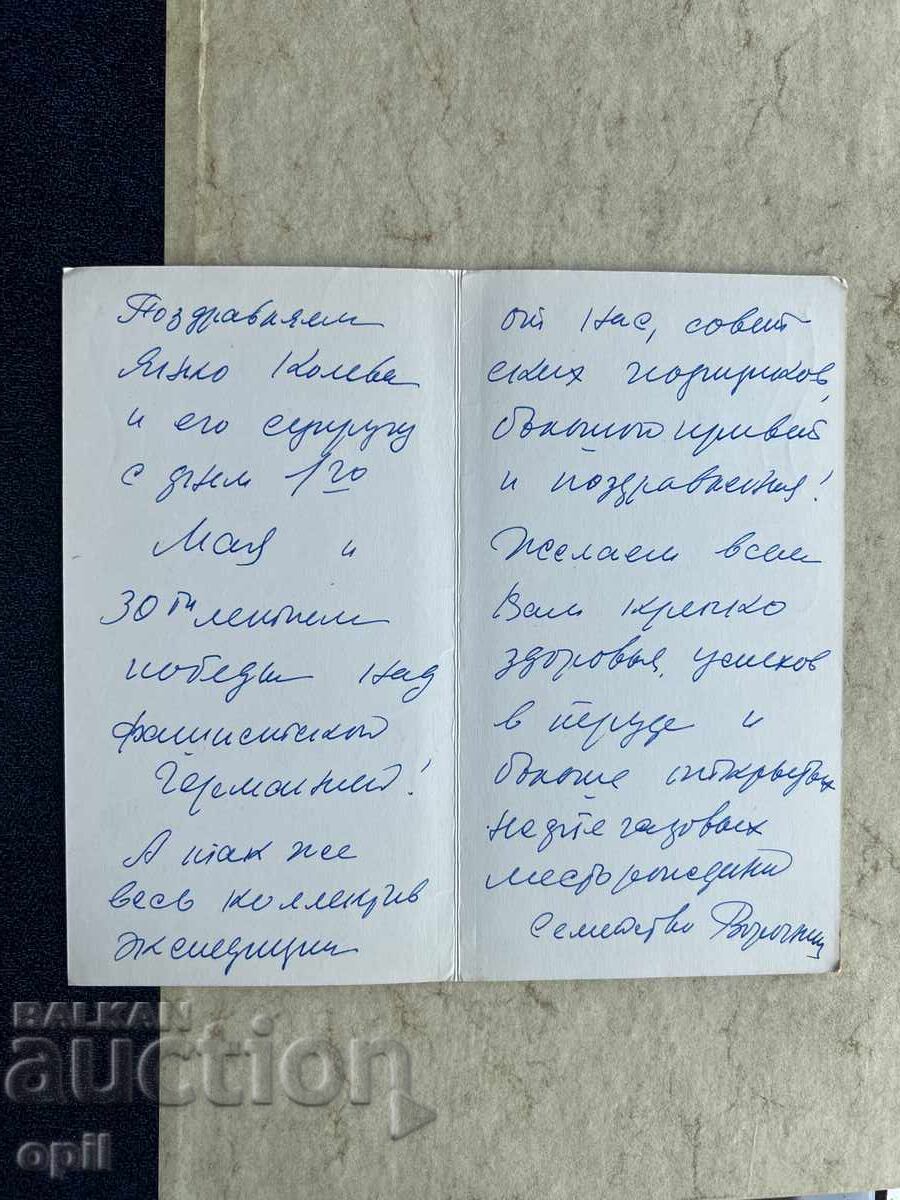 Поздравляем
Янко Колева
и его супругу
с днем 1го
Мая и
30ти летием
победы над
фашистской
Германией!
А так же
весь коллектив
экспедиции
от нас, совет
ских
большой привет
и поздравления!
Желаем всем
Вам крепко
здоровья, успехов
в труде и
больше открытых
нефте газовых
месторождений
Семейство
BALKAN
auction
opil